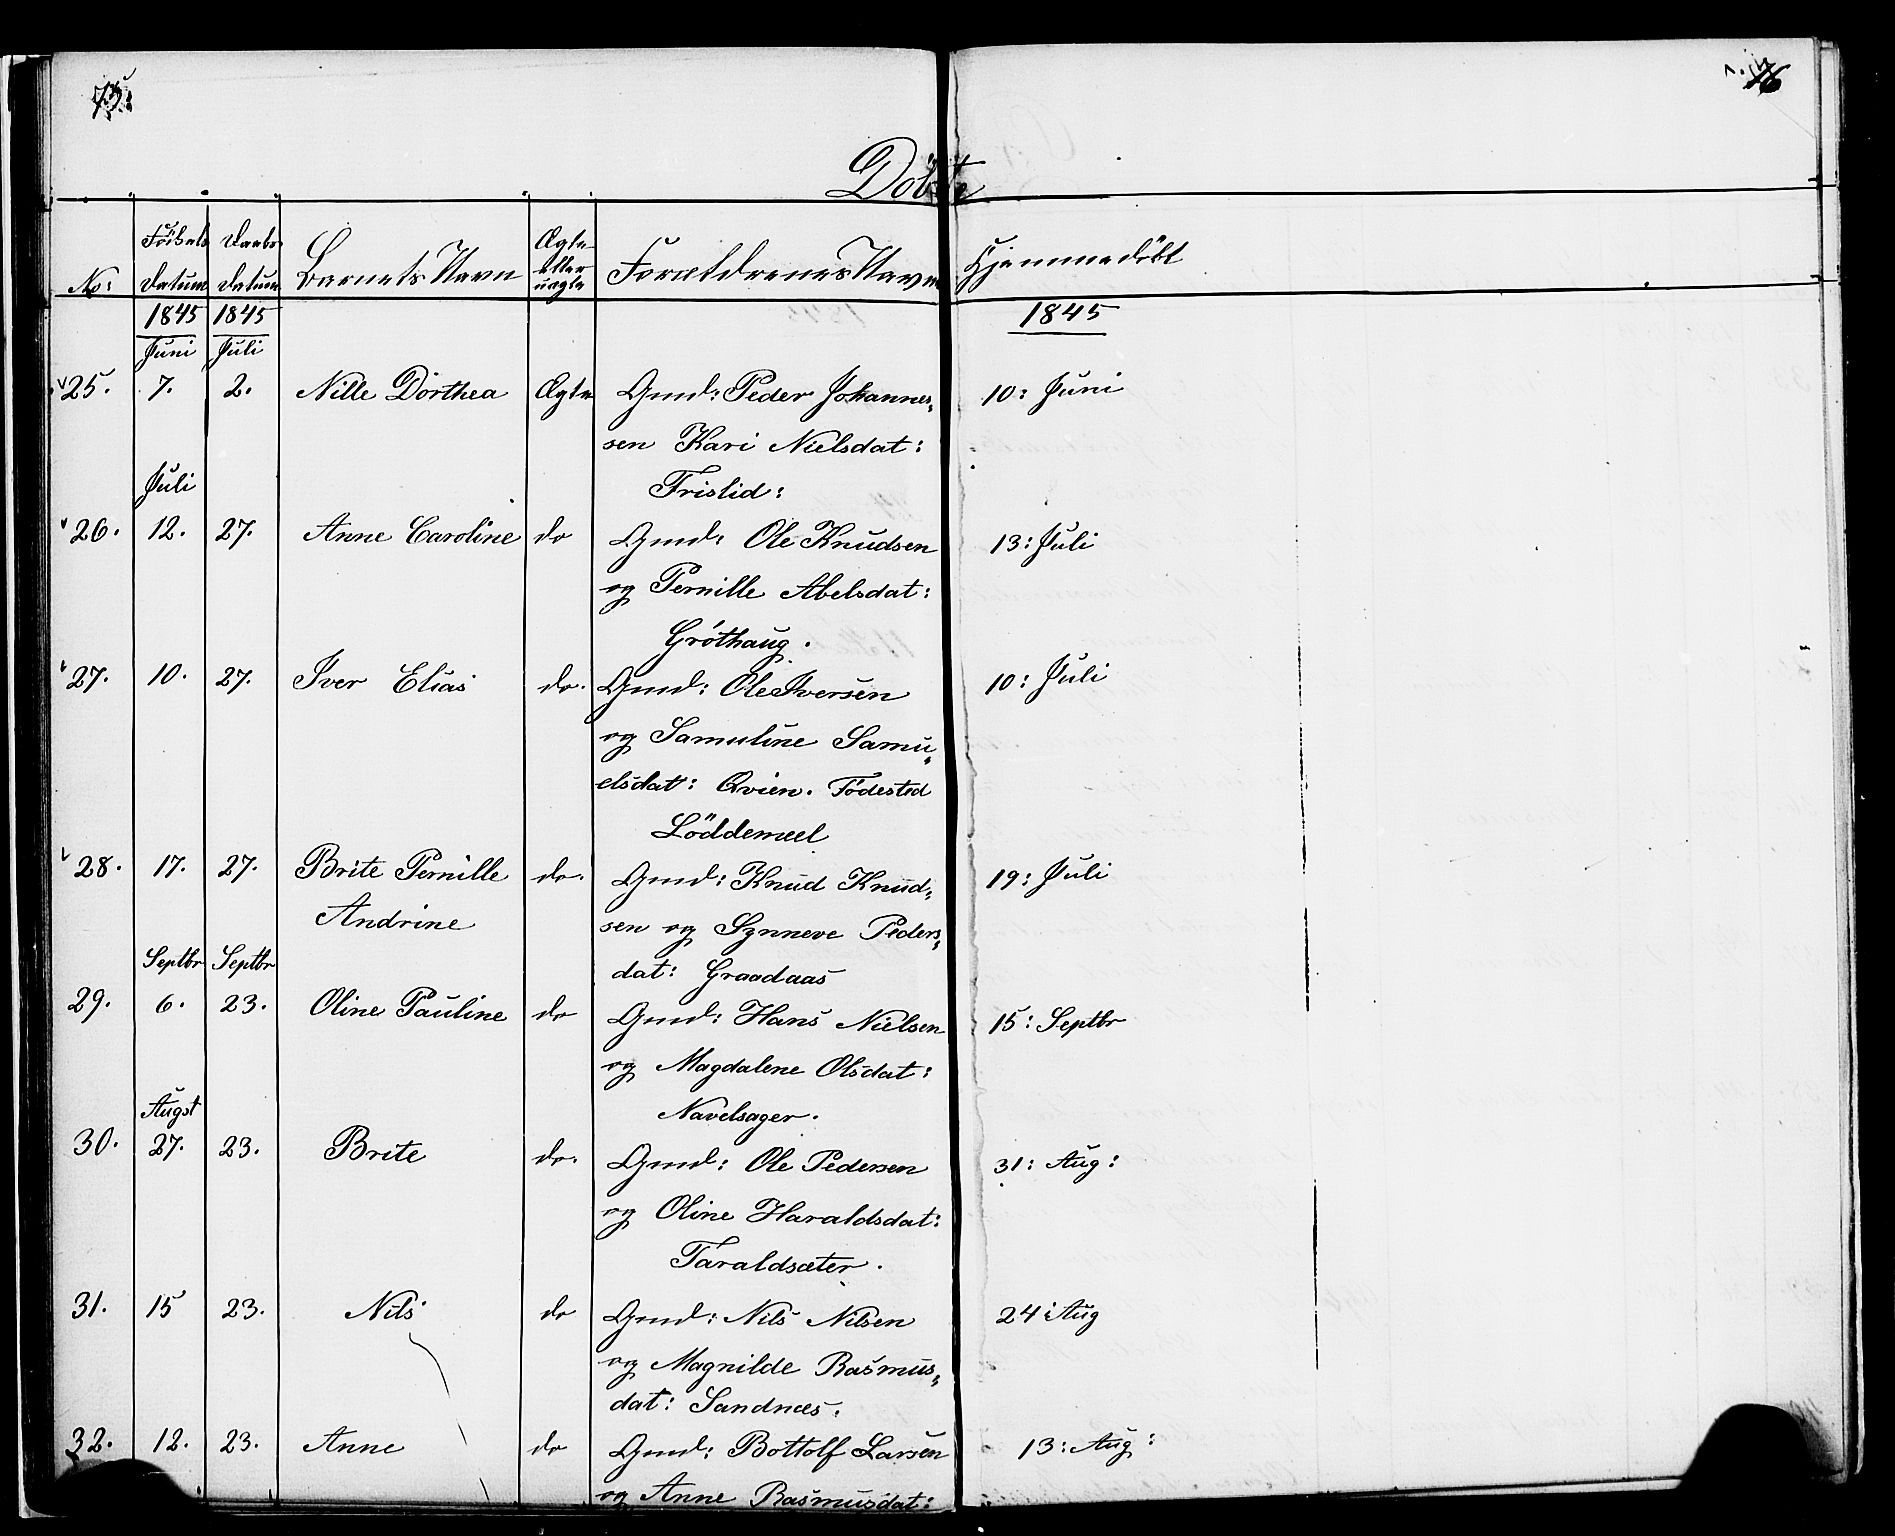 75.
76
Döbte
No: Födsels Datum Daabs Datum Barnets Navn Ægte eller uægte Forældrenes Navne Hjemmedöbt
1845 1845 1845
Juni Juli
25. 7. 2. Nille Dorthea Ægte Gmd: Peder Johannes- 10: Juni
sen Kari Nielsdat:
Juli Fristid:
26. 12. 27. Anne Caroline do Gmd: Ole Knudsen 13: Juli
og Pernille Abelsdat:
Gröthaug.
27. 10. 27. Iver Elias do. Gmd: Ole Iversen 10: Juli
og Samuline Samu-
elsdat: Qvien. Födested
Löddemeel
28. 17. 27. Brite Pernille do. Gmd: Knud Knud- 19: Juli
Andrine sen og Synneve Peders-
Septbr Septbr dat: Graadaas
29. 6. 23. Oline Pauline do Gmd: Hans Nielsen 15: Septbr
og Magdalene Olsdat:
Augst Navelsager.
30. 27. 23. Brite do. Gmd: Ole Pedersen 31: Aug:
og Oline Haraldsdat:
Taraldsæter.
31. 15 23. Nils do Gmd: Nils Nilsen 24: Aug
og Magnilde Rasmus-
dat: Sandnæs.
32. 12. 23. Anne do Gmd: Bottolf Larsen 13: Aug:
og Anne Rasmusdat: